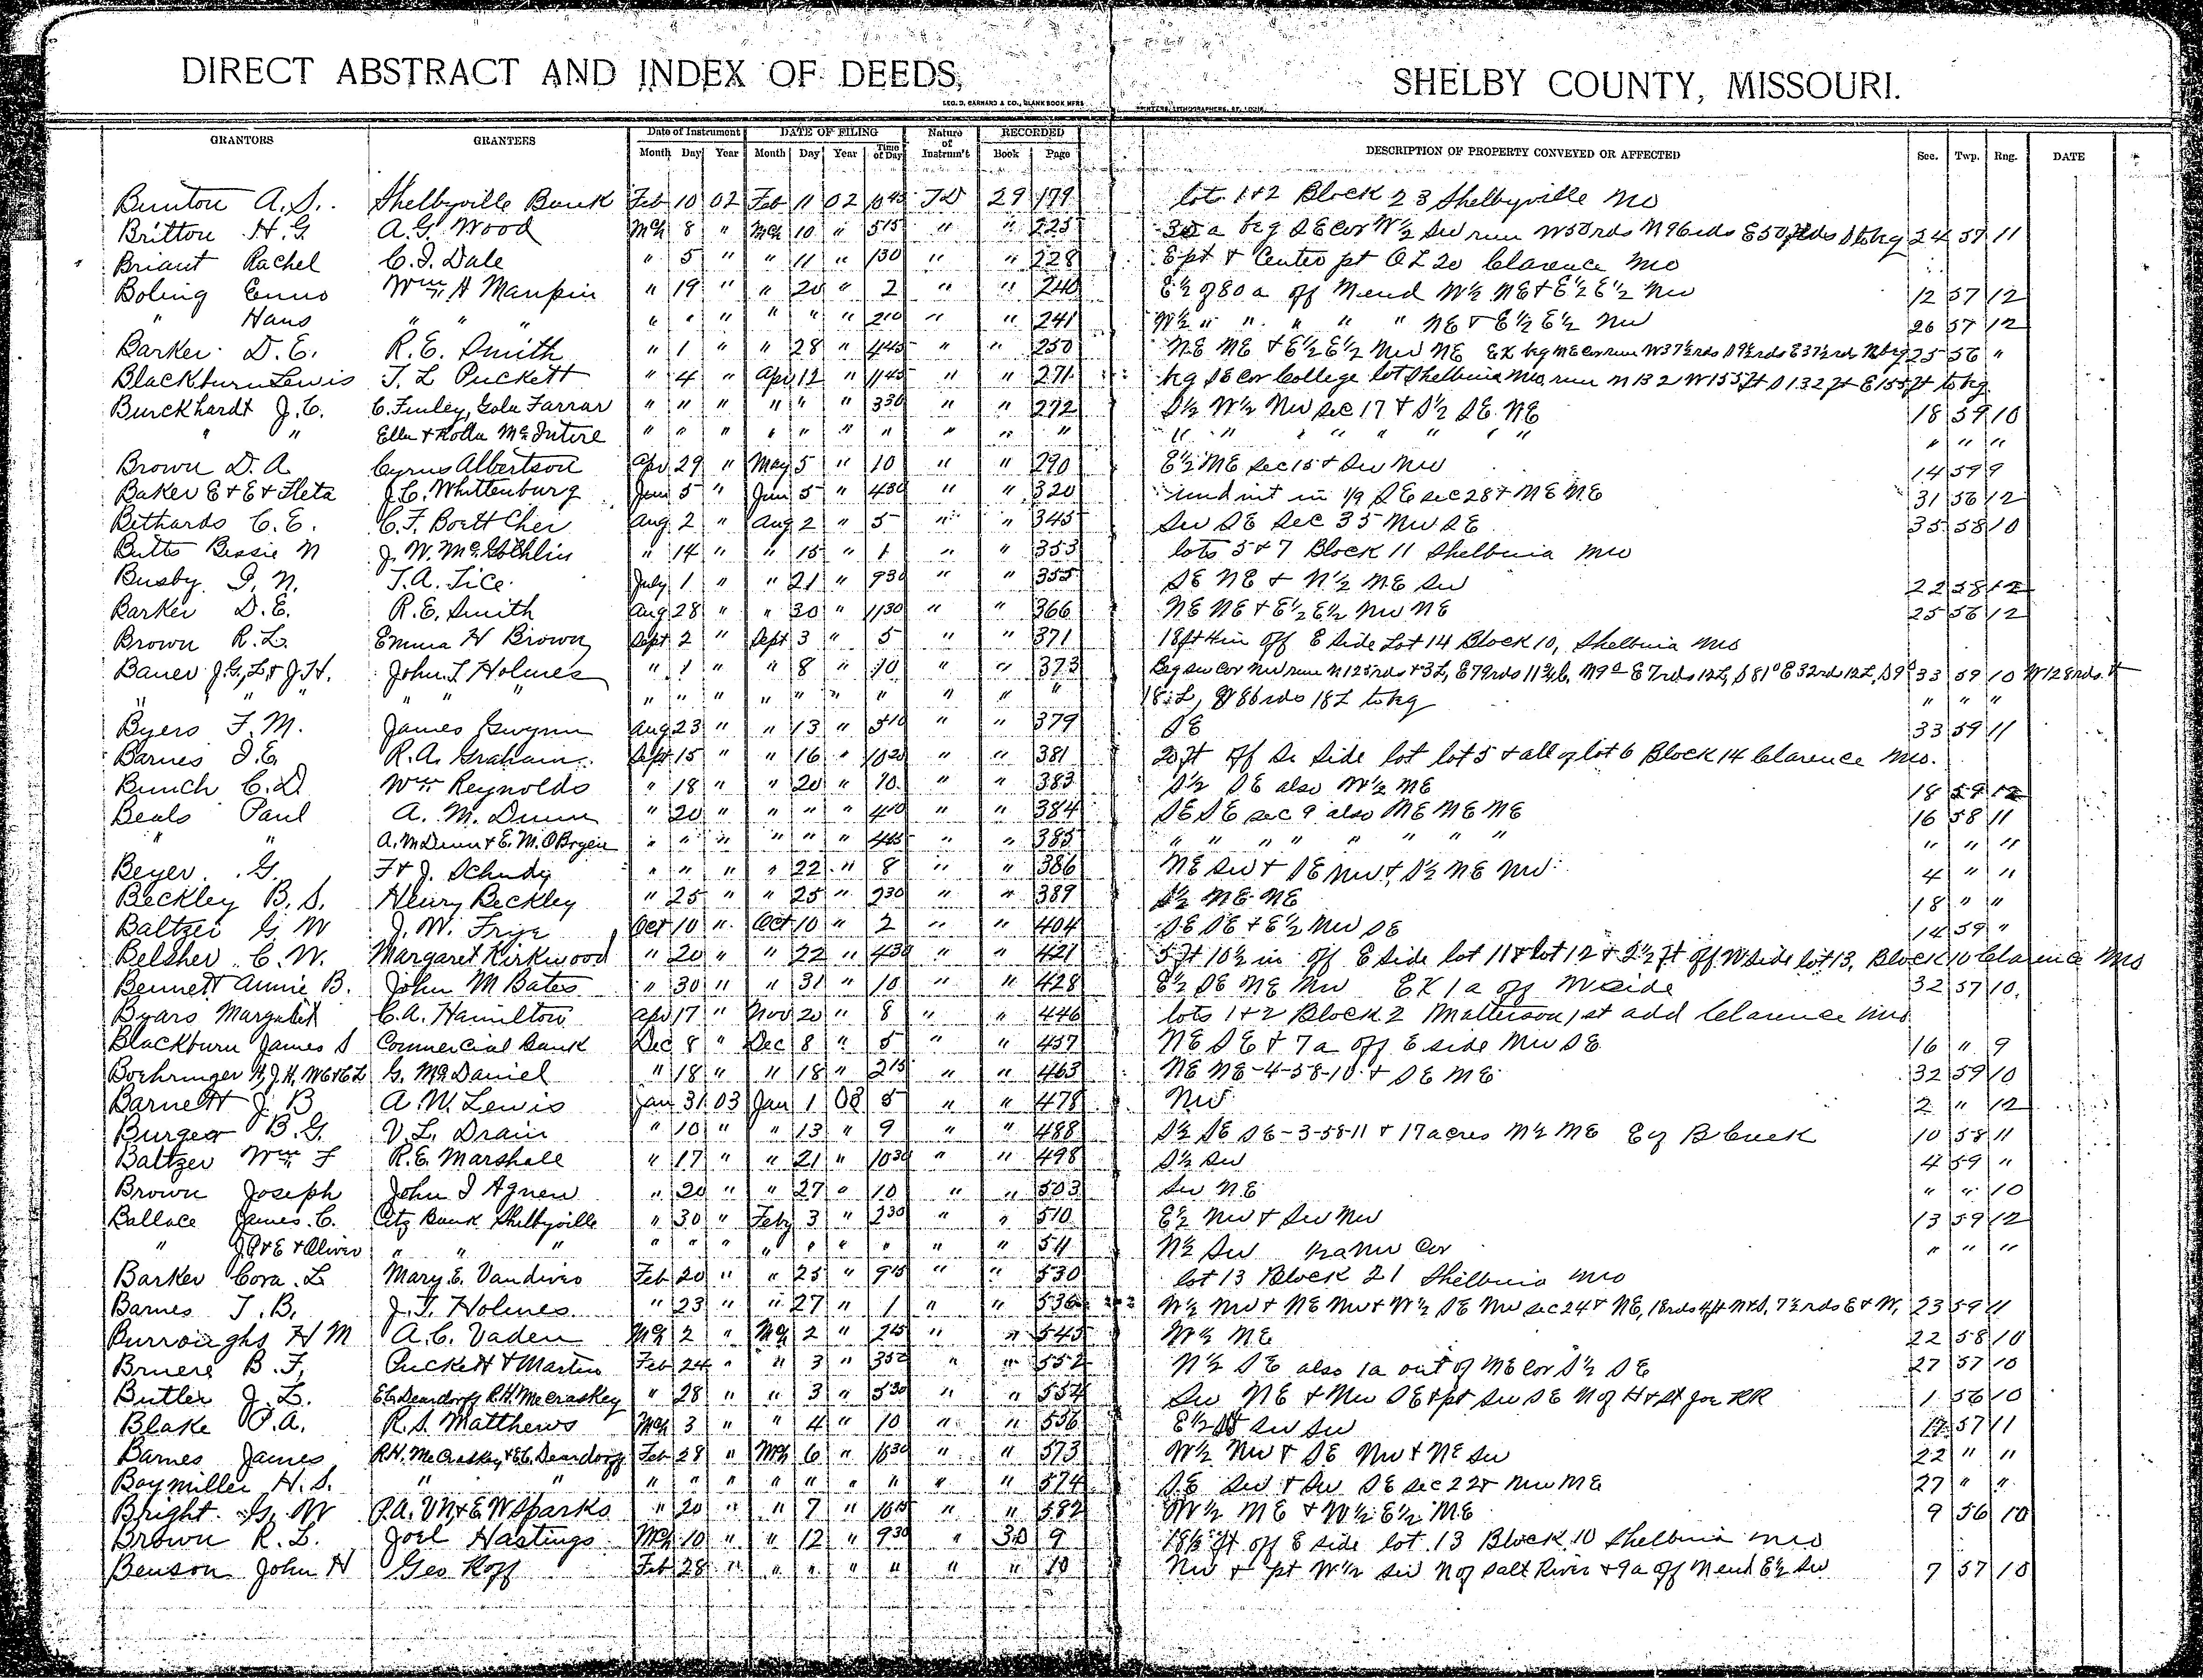 DIRECT ABSTRACT AND INDEX OF DEEDS, SHELBY COUNTY, MISSOURI.
LEO. D. BARNARD & CO., BLANK BOOK MFRS PRINTERS, LITHOGRAPHERS, ST. LOUIS
GRANTORS GRANTEES Date of Instrument DATE OF FILING Nature of Instrum't RECORDED DESCRIPTION OF PROPERTY CONVEYED OR AFFECTED Sec. Twp. Rng. DATE
Month Day Year Month Day Year Time of Day Book Page
Bunton A. S. Shelbyville Bank Feb 10 02 Feb 11 02 10 45 TD 29 179 lots 1+2 Block 23 Shelbyville Mo
Britton H. G A. G. Wood Mch 8 " Mch 10 " 5 15 " " 225 30 a beg SE cor W½ SW run W 50 rds N 96 rds E 50 rds S to beg 24 57 11
Briant Rachel C. I. Dale " 5 " " 11 " 1 30 " " 228 E pt + Center pt OL 20 Clarence Mo
Boling Enno Wm A Maupin " 19 " " 20 " 2 " " 240 E½ of 80 a off N end W½ NE + E½ E½ NW 12 57 12
" Hans " " " " " " " " " 2 10 " " 241 W½ " " " " " NE + E½ E½ NW 26 57 12
Barker D. E. R. E. Smith " 1 " " 28 " 4 45 " " 250 NE NE + E½ E½ NW NE Ex beg NE cor run W 37½ rds S 9½ rds E 37½ rds N beg 25 56 "
Blackburn Lewis T. L Puckett " 4 " Apr 12 " 11 45 " " 271 beg SE cor College lot Shelbina Mo, run N 132 W 155 ft S 132 ft E 155 ft to beg
Burckhardt J. C. C. Finley, Gola Farrar " " " " " " 3 30 " " 272 S½ W½ NW Sec 17 + S½ SE NE 18 59 10
" " Ella + Rolla McIntire " " " " " " " " " " " " " " " " " " " " "
Brown D. A. Cyrus Albertson Apr 29 " May 5 " 10 " " 290 E½ NE sec 15 + SW NW 14 59 9
Baker E + E + Fleta J. C. Whittenburg Jun 5 " Jun 5 " 4 30 " " 320 und int in 1/9 SE sec 28 + NE NE 31 56 12
Bethards C. E. C. F. Boettcher Aug 2 " Aug 2 " 5 " " 345 SW SE Sec 35 NW SE 35 58 10
Butts Bessie N J. W. McGlothlin " 14 " " 15 " 1 " " 353 lots 5 + 7 Block 11 Shelbina Mo
Busby I. N. T. A. Tice July 1 " " 21 " 9 30 " " 355 SE NE + N½ NE SW 22 58 12
Barker D. E. R. E. Smith Aug 28 " " 30 " 11 30 " " 366 NE NE + E½ E½ NW NE 25 56 12
Brown R. L. Emma H Brown Sept 2 " Sept 3 " 5 " " 371 18 ft 4 in off E side Lot 14 Block 10, Shelbina Mo
Bauer J. G., L + J. H. John T Holmes " 1 " " 8 " 10 " " 373 Beg SW cor NW run N 125 rds + 3 L, E 79 rds 11¾ L, N 9° E 7 rds 12 L, S 81° E 32 rds 12 L, S 9° 33 59 10 W 128 rds +
" " " " " " " " " " " " " " " " 18 L, 86 rds 18 L to beg " " "
Byers F. M. James Gwynn Aug 23 " " 13 " 3 10 " " 379 SE 33 59 11
Barnes I. E. R. A. Graham Sept 15 " " 16 " 10 20 " " 381 20 ft off So Side lot lot 5 + all of lot 6 Block 14 Clarence Mo.
Bunch C. D. Wm Reynolds " 18 " " 20 " 10 " " 383 S½ SE also W½ NE 18 59 12
Beals Paul A. M. Dunn " 20 " " " " 4 40 " " 384 SE SE sec 9 also NE NE NE 16 58 11
" " A. M Dunn + E. M. O Bryen " " " " " " 4 45 " " 385 " " " " " " " " " "
Beyer G. F + J. Schudy " " " " 22 " 8 " " 386 NE SW + SE NW + S½ NE NW 4 " "
Beckley B. S. Henry Beckley " 25 " " 25 " 2 30 " " 389 S½ NE NE 18 " "
Baltzer G W J. W. Frye Oct 10 " Oct 10 " 2 " " 404 SE SE + E½ NW SE 14 59 "
Belsher C. W. Margaret Kirkwood " 20 " " 22 " 4 30 " " 421 5 ft 10½ in off E side lot 11 + lot 12 + 2½ ft off W side lot 13, Block 10 Clarence Mo
Bennett Annie B. John M Bates " 30 " " 31 " 10 " " 428 E½ SE NE NW EX 1 a off N side 32 57 10
Byars Margaret C. A. Hamilton Apr 17 " Nov 20 " 8 " " 446 lots 1+2 Block 2 Matterson 1st add Clarence Mo
Blackburn James S Commercial Bank Dec 8 " Dec 8 " 5 " " 457 NE SE + 7 a off E side NW SE 16 " 9
Boehringer H, J. H, W E + C L G. McDaniel " 18 " " 18 " 2 15 " " 463 NE NE-4-58-10 + SE NE 32 59 10
Barnett J. B A. W. Lewis Jan 31 03 Jan 1 03 5 " " 478 NW 2 " 12
Burger B. G. V. L. Drain " 10 " " 13 " 9 " " 488 S½ SE SE-3-58-11 + 17 acres N½ NE Ey B Creek 10 58 11
Baltzer Wm F R. E. Marshall " 17 " " 21 " 10 30 " " 498 S½ SW 4 59 "
Brown Joseph John I Agnew " 20 " " 27 " 10 " " 503 SW NE " " 10
Ballace James. C. Citz Bank Shelbyville " 30 " Feby 3 " 2 30 " " 510 E½ NW + SW NW 13 59 12
" J. P + E + Oliver " " " " " " " " " " " " 511 N½ SW NW Cor " " "
Barker Cora. L Mary E. Vandiver Feb 20 " " 25 " 9 15 " " 530 lot 13 Block 21 Shelbina Mo
Barnes T. B. J. T. Holmes " 23 " " 27 " 1 " " 536 W½ NW + NE NW + W½ SE NW sec 24 + NE, 18 rds 4 ft N + S, 7½ rds E + W, 23 59 11
Burroughs H M A. C. Vaden Mch 2 " Mch 2 " 2 45 " " 545 W½ NE 22 58 10
Bruere B. F. Puckett + Martin Feb 24 " " 3 " 3 50 " " 552 N½ SE also 1a out of NE cor S½ SE 27 57 10
Butler J. L. E. C. Deardorff R. H. McCraskey " 28 " " 3 " 5 30 " " 554 SW NE + NW SE + pt SW SE N of H + St Joe RR 1 56 10
Blake P. A. R. S. Matthews Mch 3 " " 4 " 10 " " 556 E½ SW SW 17 57 11
Barnes James R. H. McCraskey + E. C. Deardorff Feb 28 " Mch 6 " 10 30 " " 573 W½ NW + SE NW + NE SW 22 " "
Baymiller H. S. " " " " " " " " " " " 574 SE SW + SW SE sec 22 + NW NE 27 " "
Bright G. W P. A. V N. + E. W Sparks " 20 " " 7 " 10 15 " " 582 W½ NE + W½ E½ NE 9 56 10
Brown R. L. Joel Hastings Mch 10 " " 12 " 9 30 " 30 9 18½ ft off E side lot 13 Block 10 Shelbina Mo
Benson John H Geo Roff Feb 28 " " " " " " " 10 NW + pt W½ SW N of Salt River + 9a off N end E½ SW 7 57 10